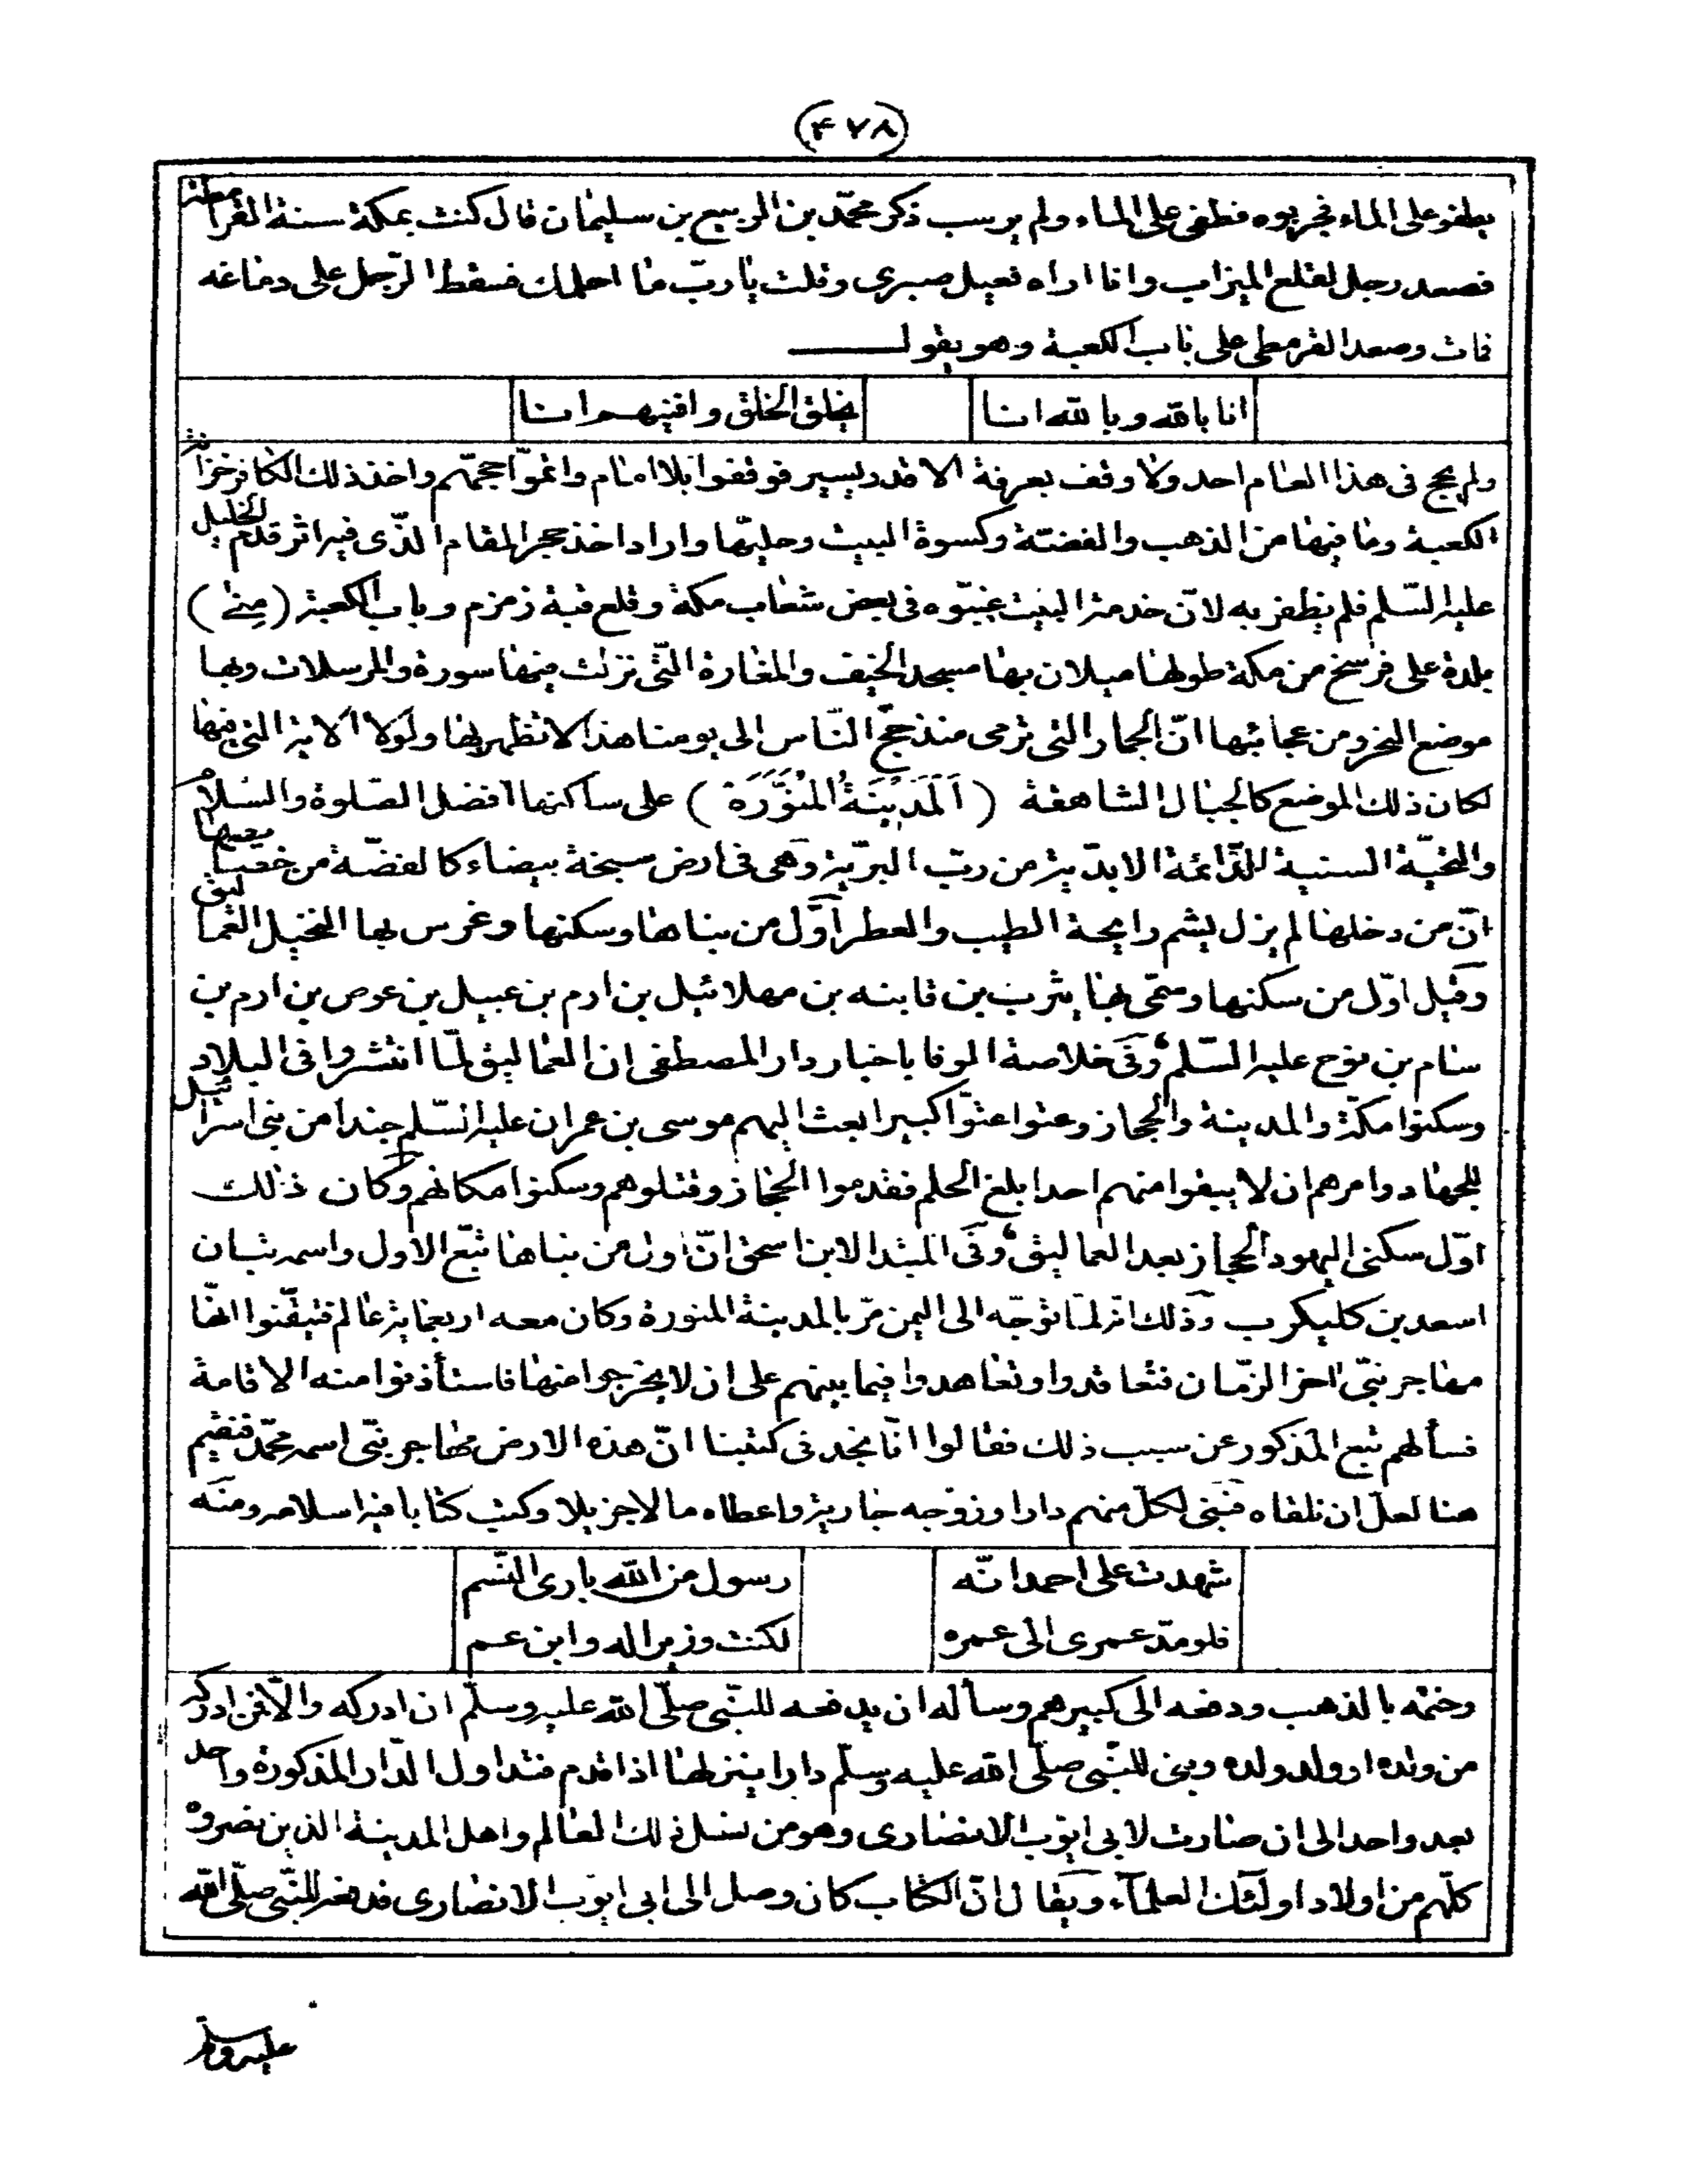 (٤٧٨)
يطفو على الماء فجربوه فطفى على الماء ولم يرسب ذكر محمّد بن الربيع بن سليمان قال كنت بمكة سنة القرامطة
فصعد رجل لقلع الميزاب وانا اراه فعيل صبرى وقلت يا ربّ ما احلمك فسقط الرّجل على دماغه
فمات وصعد القرمطى على باب الكعبة وهو يقول
انا بالله وبالله انا يخلق الخلق وافنيهم انا
ولم يحج فى هذا العام احد ولا وقف بعرفة الا قدر يسير فوقفوا بلا امام واتمّوا حجهم واخذ ذلك الكافر خزانة
الكعبة وما فيها من الذهب والفضّة وكسوة البيت وحليتها واراد اخذ حجر المقام الذّى فيه اثر قدم الخليل
عليه السّلم فلم يظفر به لانّ خدمة البيت غيّبوه فى بعض شعاب مكة وقلع قبة زمزم وباب الكعبة (مِنى)
بلدة على فرسخ من مكة طولها ميلان بها مسجد الخيف والمغارة التّى نزلت فيها سورة والمرسلات وبها
موضع النحر ومن عجائبها انّ الجمار التى ترمى منذ حجّ النّاس الى يومنا هذا لا تظهر بها ولولا الاية التى فيها
لكان ذلك الموضع كالجبال الشاهقة (اَلْمَدِينَةُ المُنَوَّرَة) على ساكنها افضل الصّلوة والسّلام
والتحيّة السنية الدّائمة الابديّة من ربّ البريّة وهى فى ارض سبخة بيضاء كالفضّة من خصبها
انّ من دخلها لم يزل يشم رايحة الطيب والعطر اوّل من بناها وسكنها وغرس بها النخيل العماليق
وقيل اوّل من سكنها وسمّى بها يثرب بن قابنه بن مهلائيل بن ارم بن عبيل بن عوص بن ارم بن
سام بن نوح عليه السّلم وفى خلاصة الوفا باخبار دار المصطفى ان العماليق لمّا انتشروا فى البلاد
وسكنوا مكّة والمدينة والحجاز وعتوا عتوّا كبيرا بعث اليهم موسى بن عمران عليه السّلم جندا من بنى اسرائيل
للجهاد وامرهم ان لا يبقوا منهم احدا بلغ الحلم فقدموا الحجاز وقتلوهم وسكنوا مكانهم وكان ذلك
اوّل سكنى اليهود الحجاز بعد العماليق وفى المبتدا لابن اسحق انّ اول من بناها تبّع الاول واسمه تبان
اسعد بن كليكرب وذلك انّه لمّا توجّه الى اليمن مرّ بالمدينة المنورة وكان معه اربعماية عالم فتيقّنوا انّها
مهاجر نبّى اخر الزمّان فتعاقدوا وتعاهدوا فيما بينهم على ان لا يخرجوا منها فاستأذنوا منه الاقامة
فسألهم تبع المذكور عن سبب ذلك فقالوا انّا نجد فى كتبنا انّ هذه الارض مهاجر نبّى اسمه محمّد فنقيم
هنا لعل ان نلقاه فبنى لكلّ منهم دارا وزوّجه جارية واعطاه مالا جزيلا وكتب كتابا فيه اسلامه ومنه
شهدت على احمد انّه رسول من الله بارى النّسم
فلو مدّ عمرى الى عمره لكنت وزيرا له وابن عم
وختمه بالذهب ودفعه الى كبيرهم وسأله ان يدفعه للنبّى صلّى الله عليه وسلّم ان ادركه والّا فمن ادركه
من ولده او ولد ولده وبنى للنبّى صلّى الله عليه وسلّم دارا ينزلها اذا قدم فتداول الدّار المذكورة واحد
بعد واحد الى ان صارت لابى ايّوب الانصارى وهو من نسل ذلك العالم واهل المدينة الذين نصروه
كلّهم من اولاد اولئك العلمآء ويقال انّ الكتاب كان وصل الى ابى ايّوب الانصارى فدفعه للنبّى صلّى الله
عليه وسلم